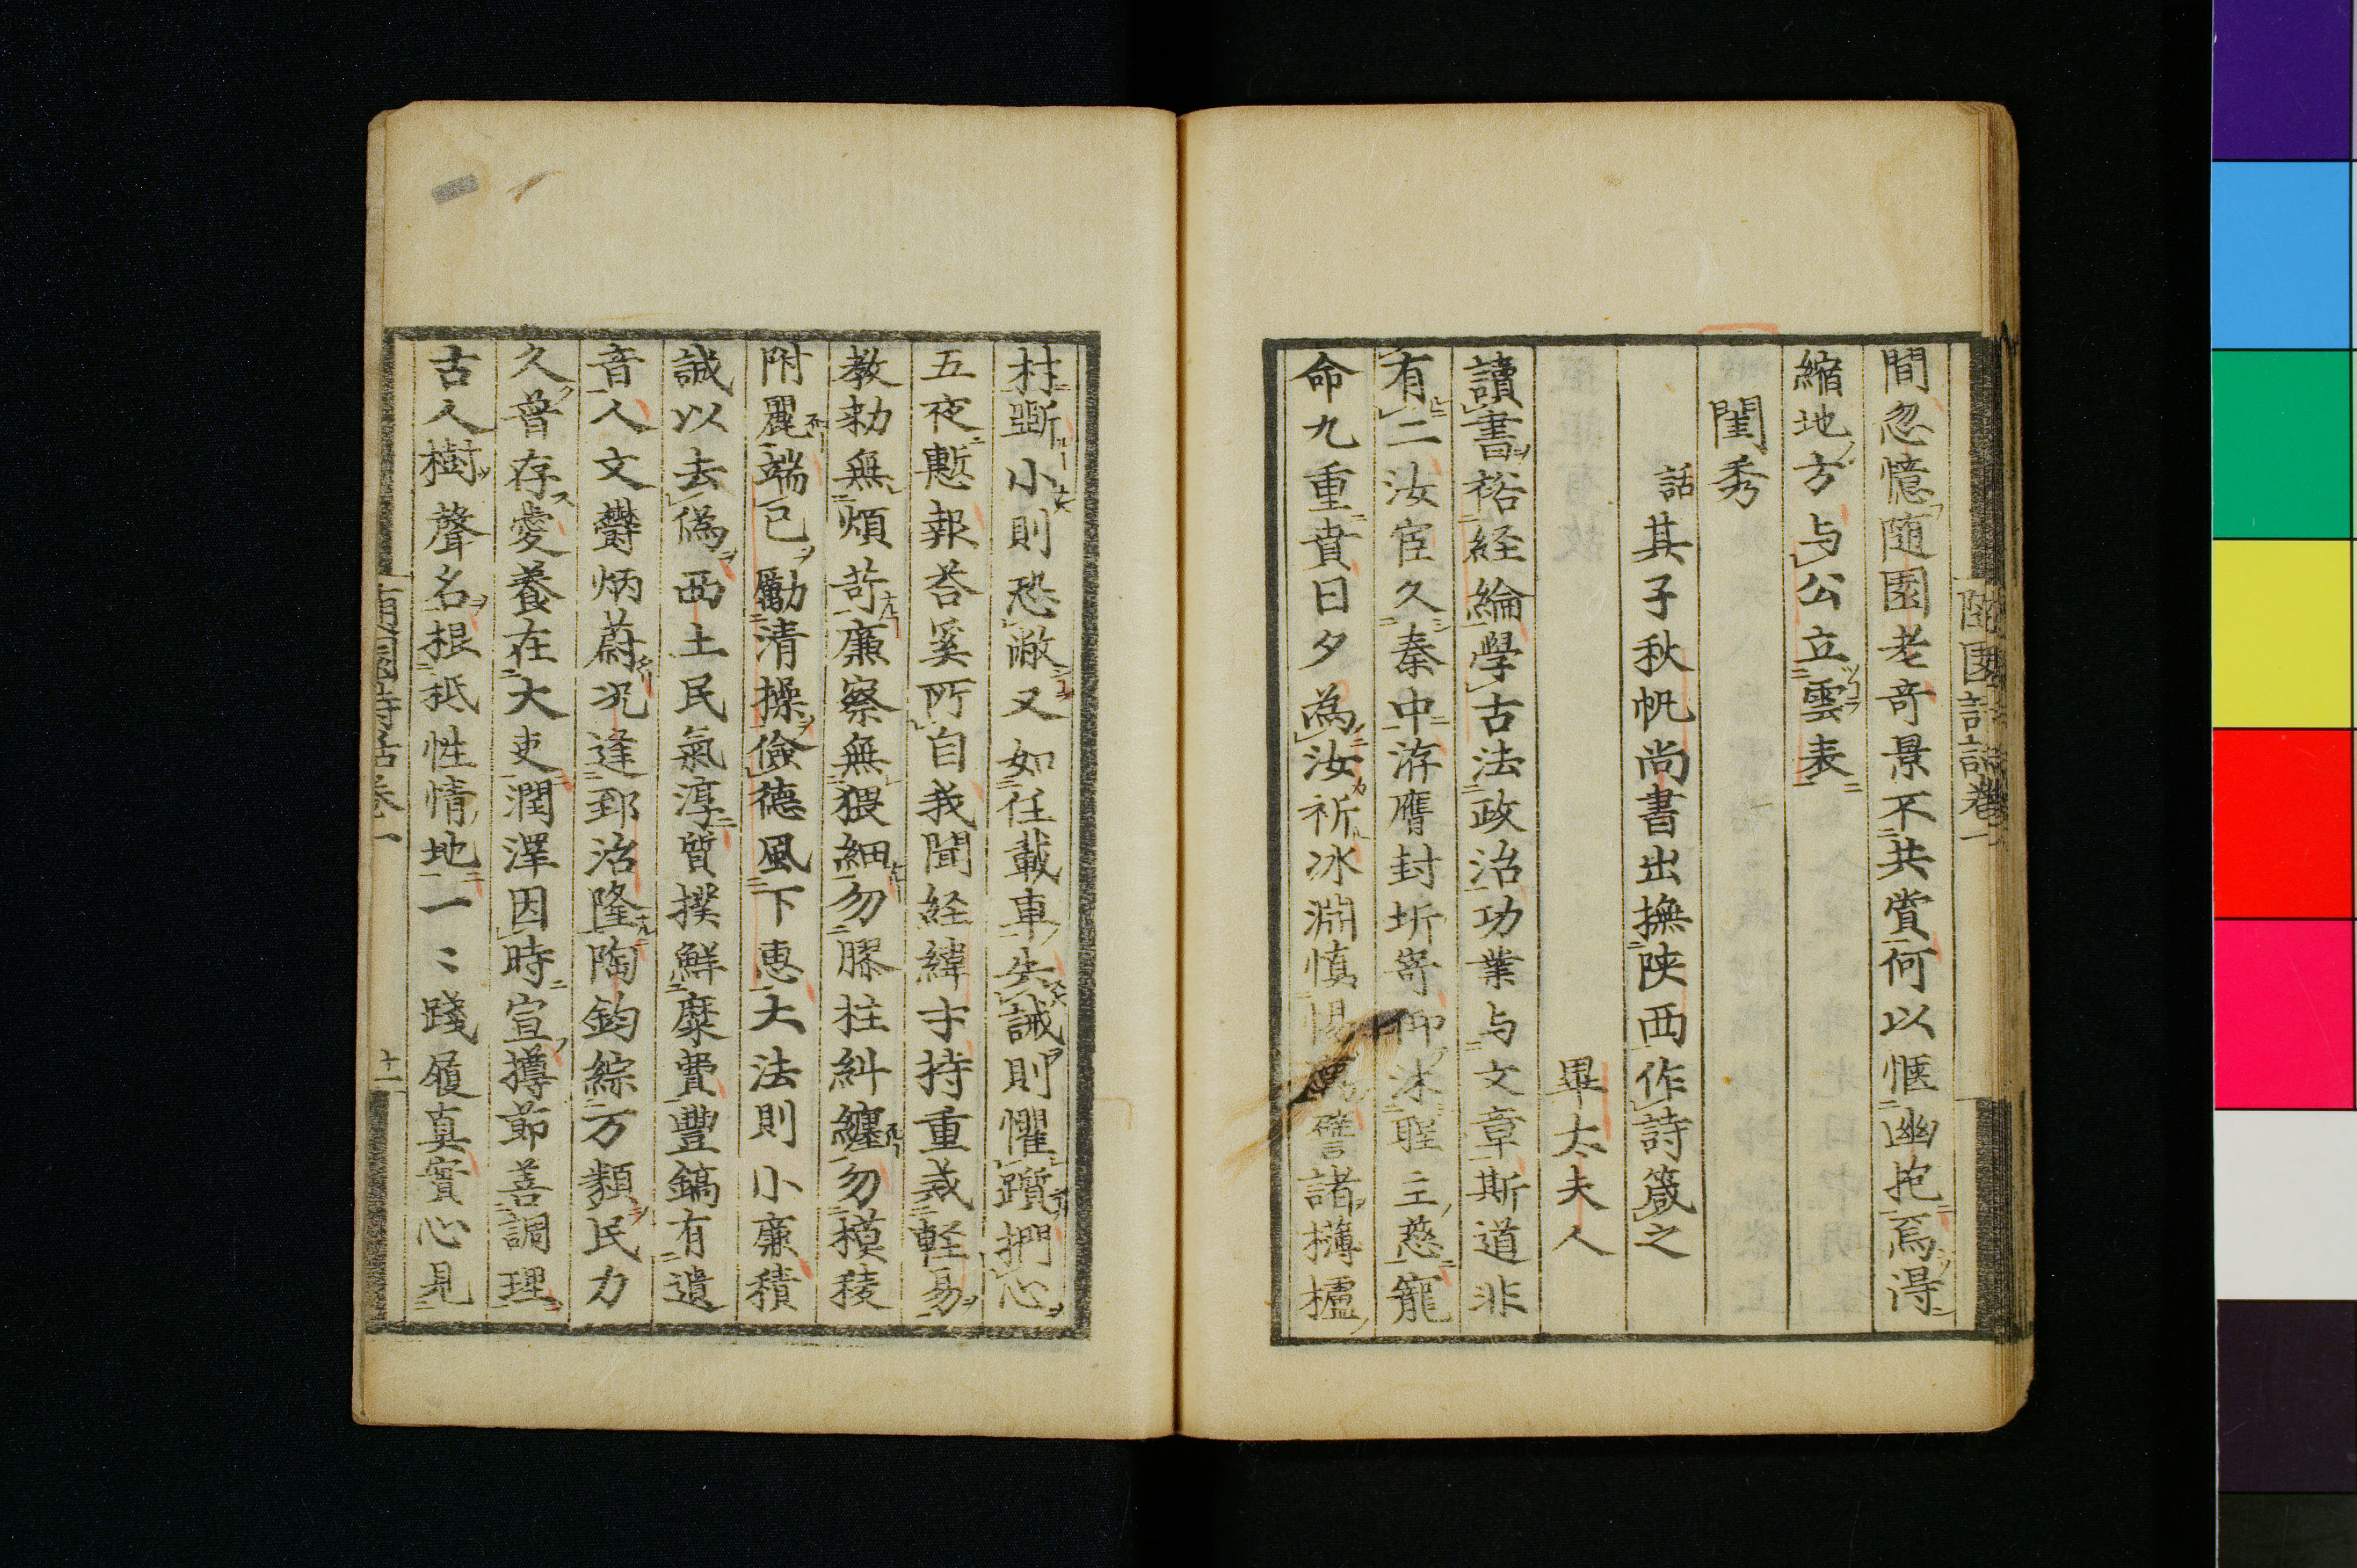 随園詩話卷一
間忽憶随園老奇景不共賞何以愜幽抱焉得
縮地方与公立雲表
閨秀
話其子秋帆尚書出撫陝西作詩箴之
畢太夫人
讀書裕経綸學古法政治功業与文章斯道非
有二汝宦久秦中洊膺封圻寄仰沐聖主慈寵
命九重賁日夕為汝祈冰淵慎惕譬諸欂櫨
材斲小則恐敝又如任載車失誡則懼躓捫心
五夜慙報荅奚所自我聞経緯才持重戒輕易
教勅無煩苛廉察無猥細勿膠柱糾纏勿模稜
附麗端已勵清操儉德風下惠大法則小廉積
誠以去偽西土民氣淳質撲鮮糜費豐鎬有遺
音人文欝炳蔚况逢郅治隆陶鈞綜万類民力
久普存愛養在大吏潤澤因時宣撙節善調理
古人樹聲名根柢性情地一〻踐履真實心見
随園詩話卷一
十一